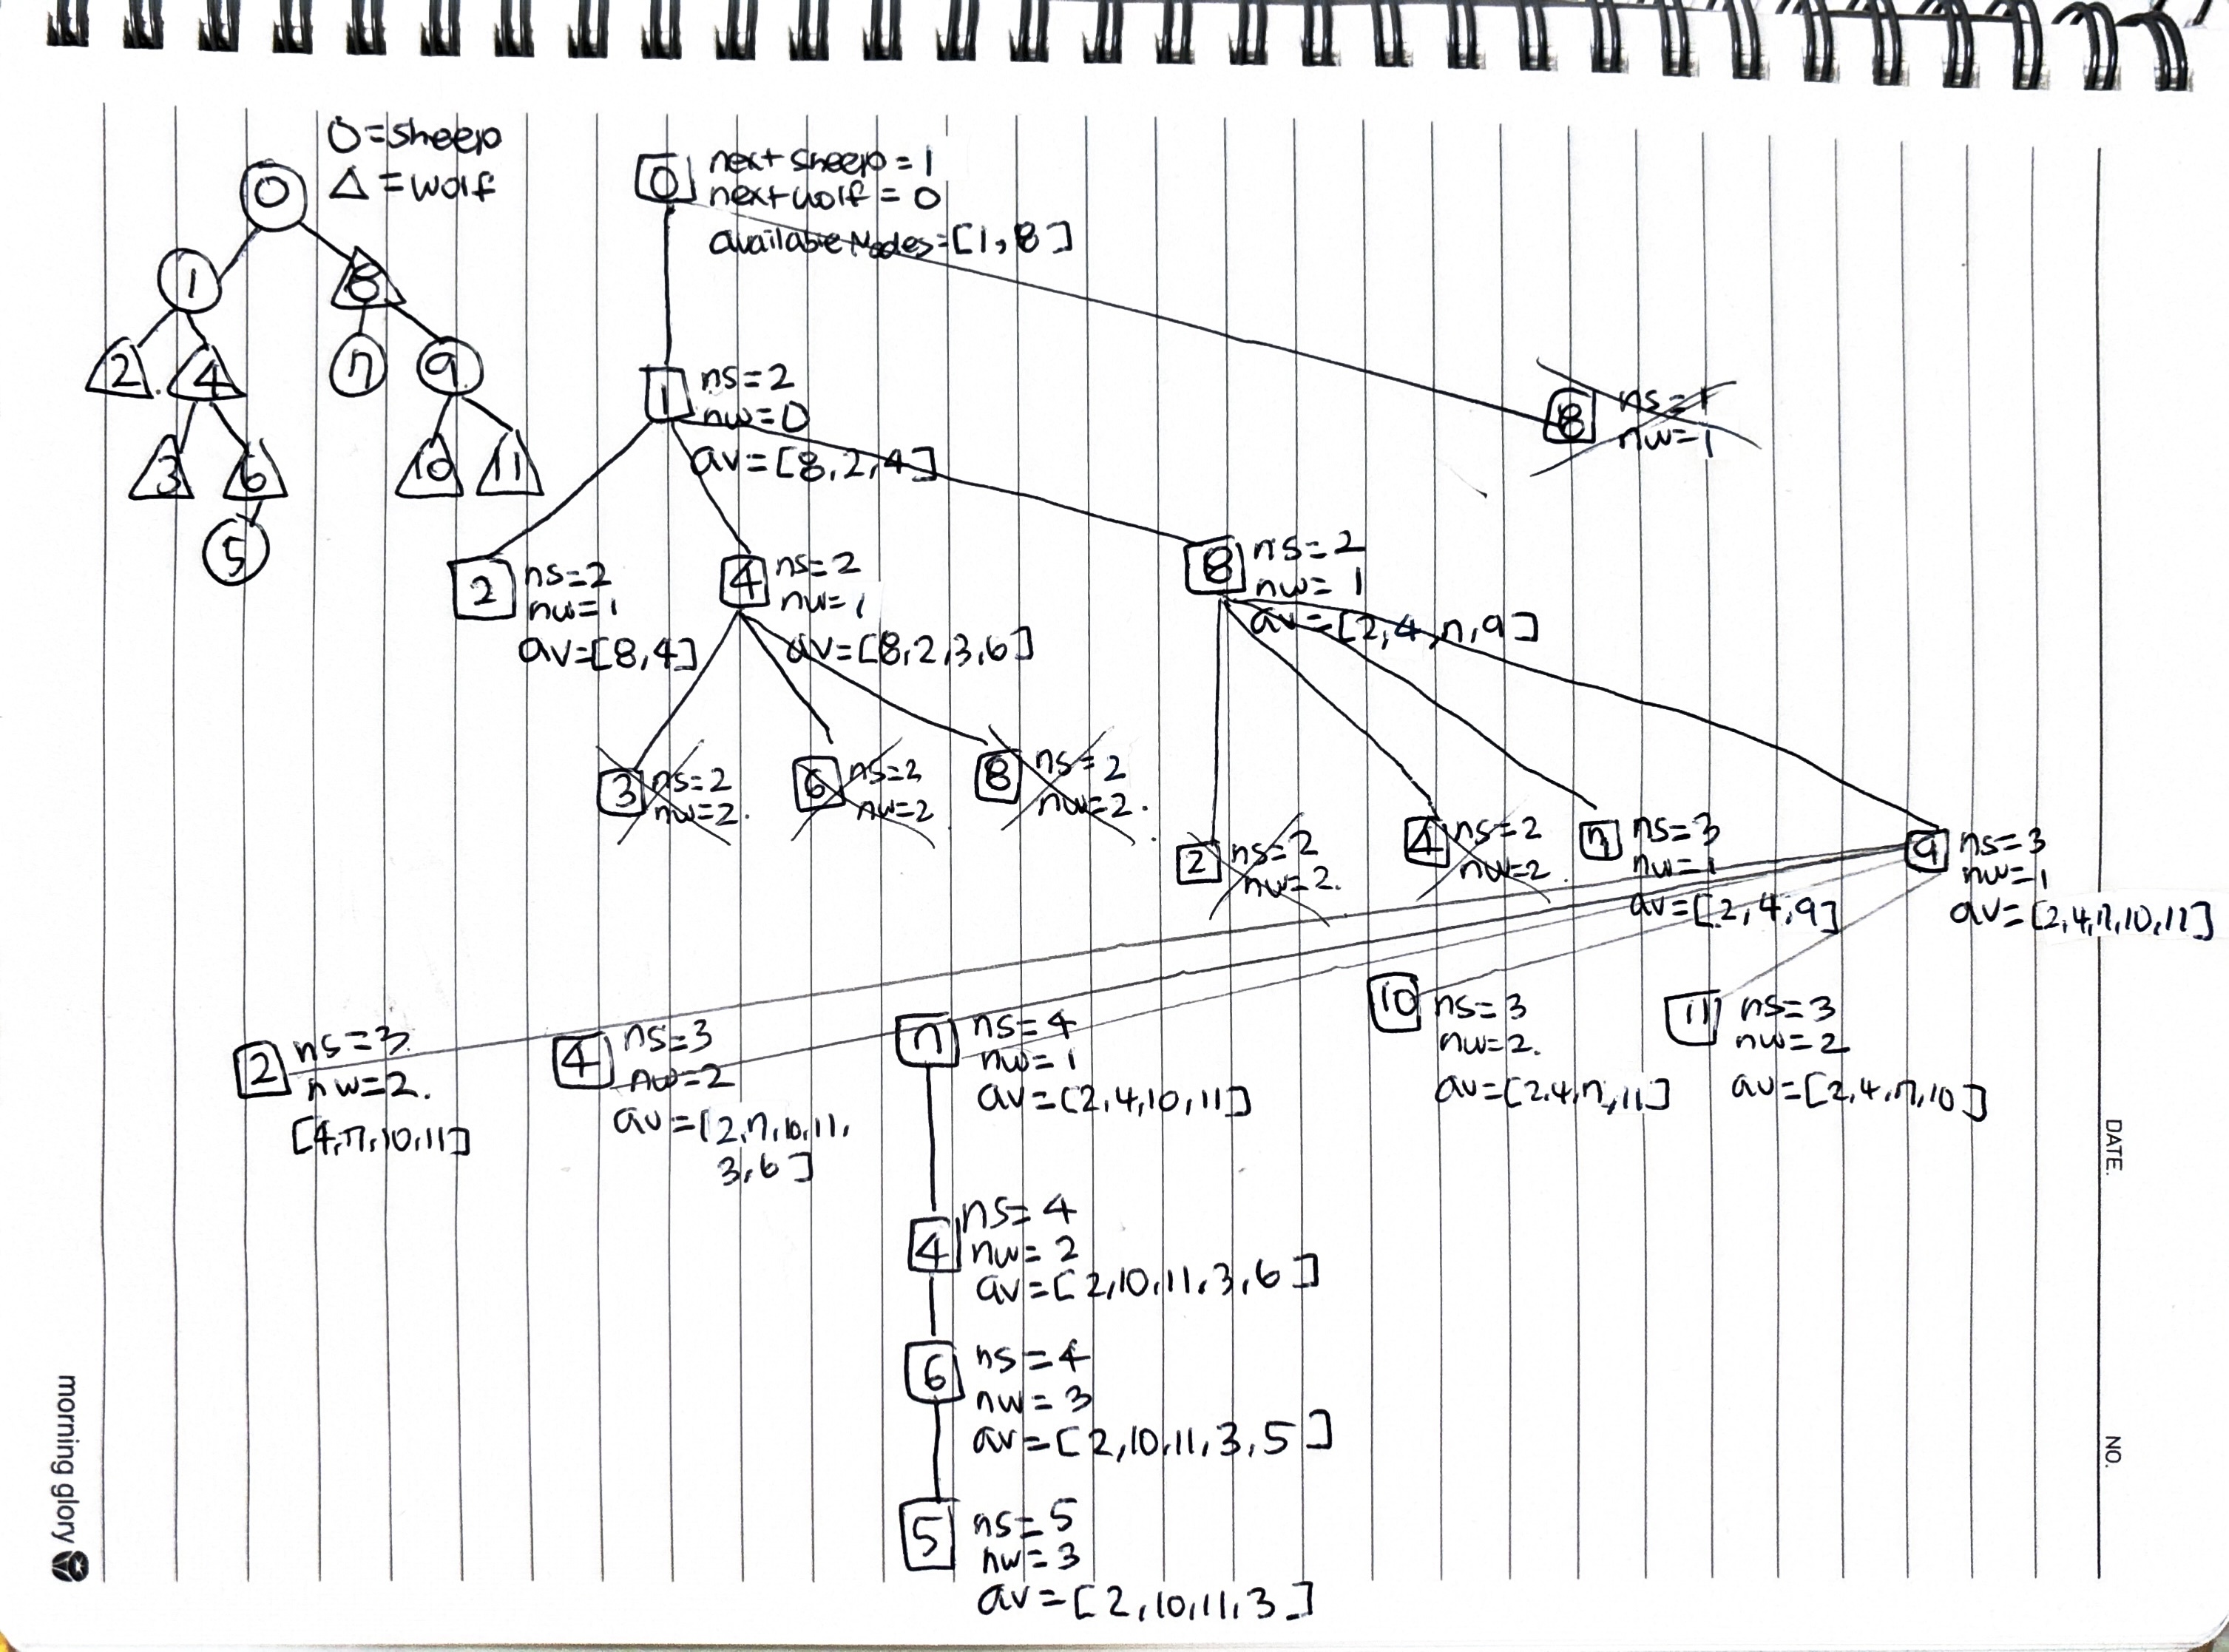 O=sheep
△=wolf
0
1
8
2
4
7
9
3
6
10
11
5
0
next sheep = 1
next wolf = 0
available Nodes=[1,8]
1
ns=2
nw=0
av=[8,2,4]
8
ns=1
nw=1
2
ns=2
nw=1
av=[8,4]
4
ns=2
nw=1
av=[8,2,3,6]
8
ns=2
nw=1
av=[2,4,7,9]
3
ns=2
nw=2.
6
ns=2
nw=2
8
ns=2
nw=2.
2
ns=2
nw=2.
4
ns=2
nw=2.
7
ns=3
nw=1
av=[2,4,9]
9
ns=3
nw=1
av=[2,4,7,10,11]
2
ns=3
nw=2.
[4,7,10,11]
4
ns=3
nw=2
av=[2,7,10,11,
3,6]
7
ns=4
nw=1
av=[2,4,10,11]
10
ns=3
nw=2.
av=[2,4,7,11]
11
ns=3
nw=2
av=[2,4,7,10]
4
ns=4
nw=2
av=[2,10,11,3,6]
6
ns=4
nw=3
av=[2,10,11,3,5]
5
ns=5
nw=3
av=[2,10,11,3]
DATE.
NO.
morning glory